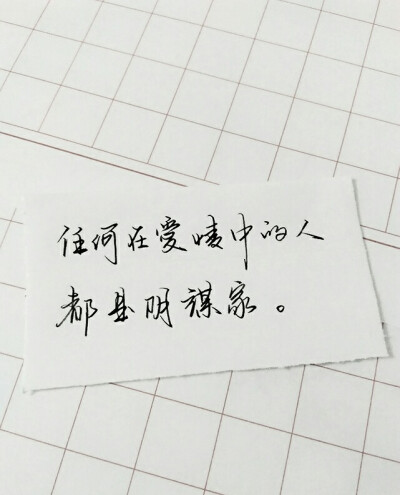 任何在爱情中的人
都是阴谋家。